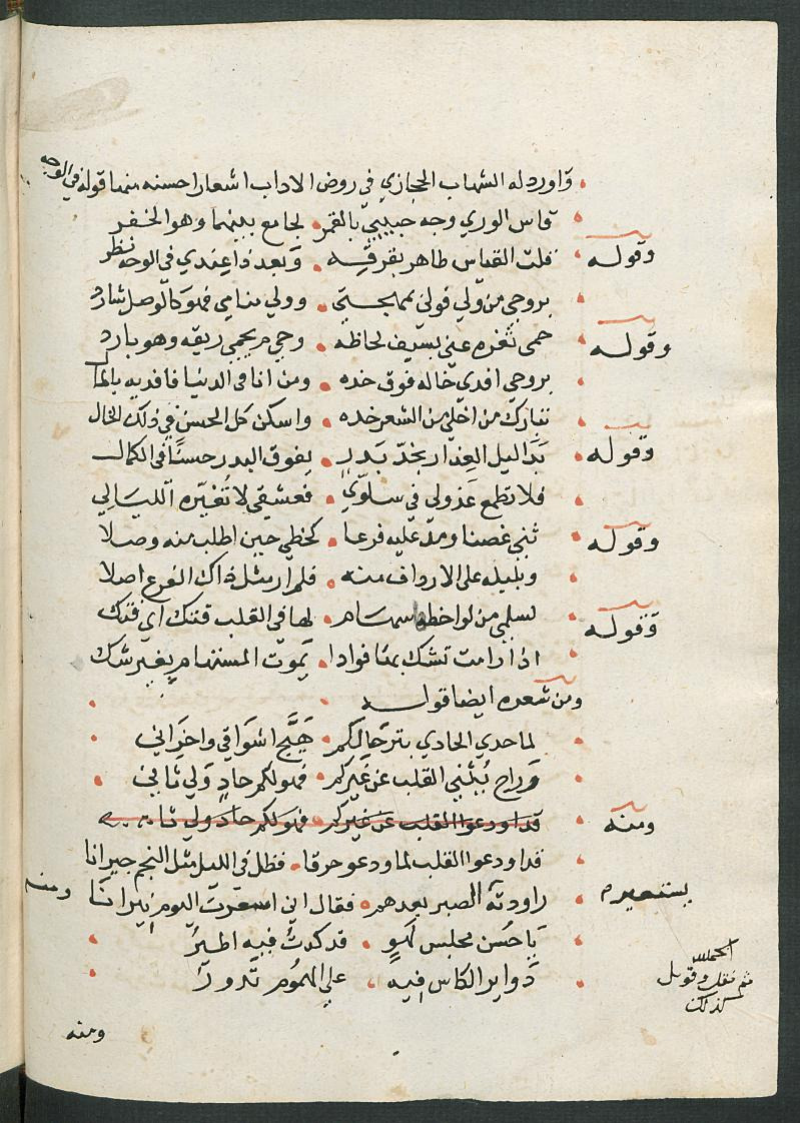 واورد له الشهاب الحجازي في روض الاداب اشعارا حسنه منها قوله في الوجه
قاس الورى وجه حبيبي بالقمر لجامع بينهما وهو الخفر
وقوله
قلت القياس ظاهر بفرقه وبعد ذا عندي في الوجه نظر
بروحي من ولي فولى بمهجتي وولى منامي فهو كالوصل شارد
وقوله
حمى ثغره عني بسيف لحاظه وحي م يحمي ريقه وهو بارد
بروحي افدي خاله فوق خده ومن انا في الدنيا فافديه بالما
تبارك من اخلى من الشعر خده واسكن كل الحسن في ذلك الخال
وقوله
بدا ليل العذار بخد بدر يفوق البدر حسنا في الكمال
فلا تطمع عذولي في سلوي فعشقي لا تغيره الليالي
وقوله
ثنى غصنا ومد عليه فرعا كحظي حين اطلب منه وصلا
وبلبله على الارداف منه فلم ار مثل ذاك الفرع اصلا
وقوله
لسلمي من لواحظها سهام لها في القلب فتك اي فتك
اذا رامت تشك بها فوادا يموت المستهام بغير شك
ومن شعره ايضا قوله
لما حدى الحادي بترحالكم هيج اشواقي واحزاني
وراح يثني القلب عن غيركم فهو لكم حاد ولي ثاني
ومنه
قد اودعوا القلب عن غيركم فهو لكم حاد ولي ثا
قد اودعوا القلب لما ودعوا حرقا فظل في الليل مثل النجم حيرانا
راودته الصبر بعدهم فقال اني استعرت اليوم نيرانا
يستعير م
ومنه
يا حسن مجلس لهو قد كدت فيه اطير
دواير الكاس فيه على الهموم تدور
ومنه